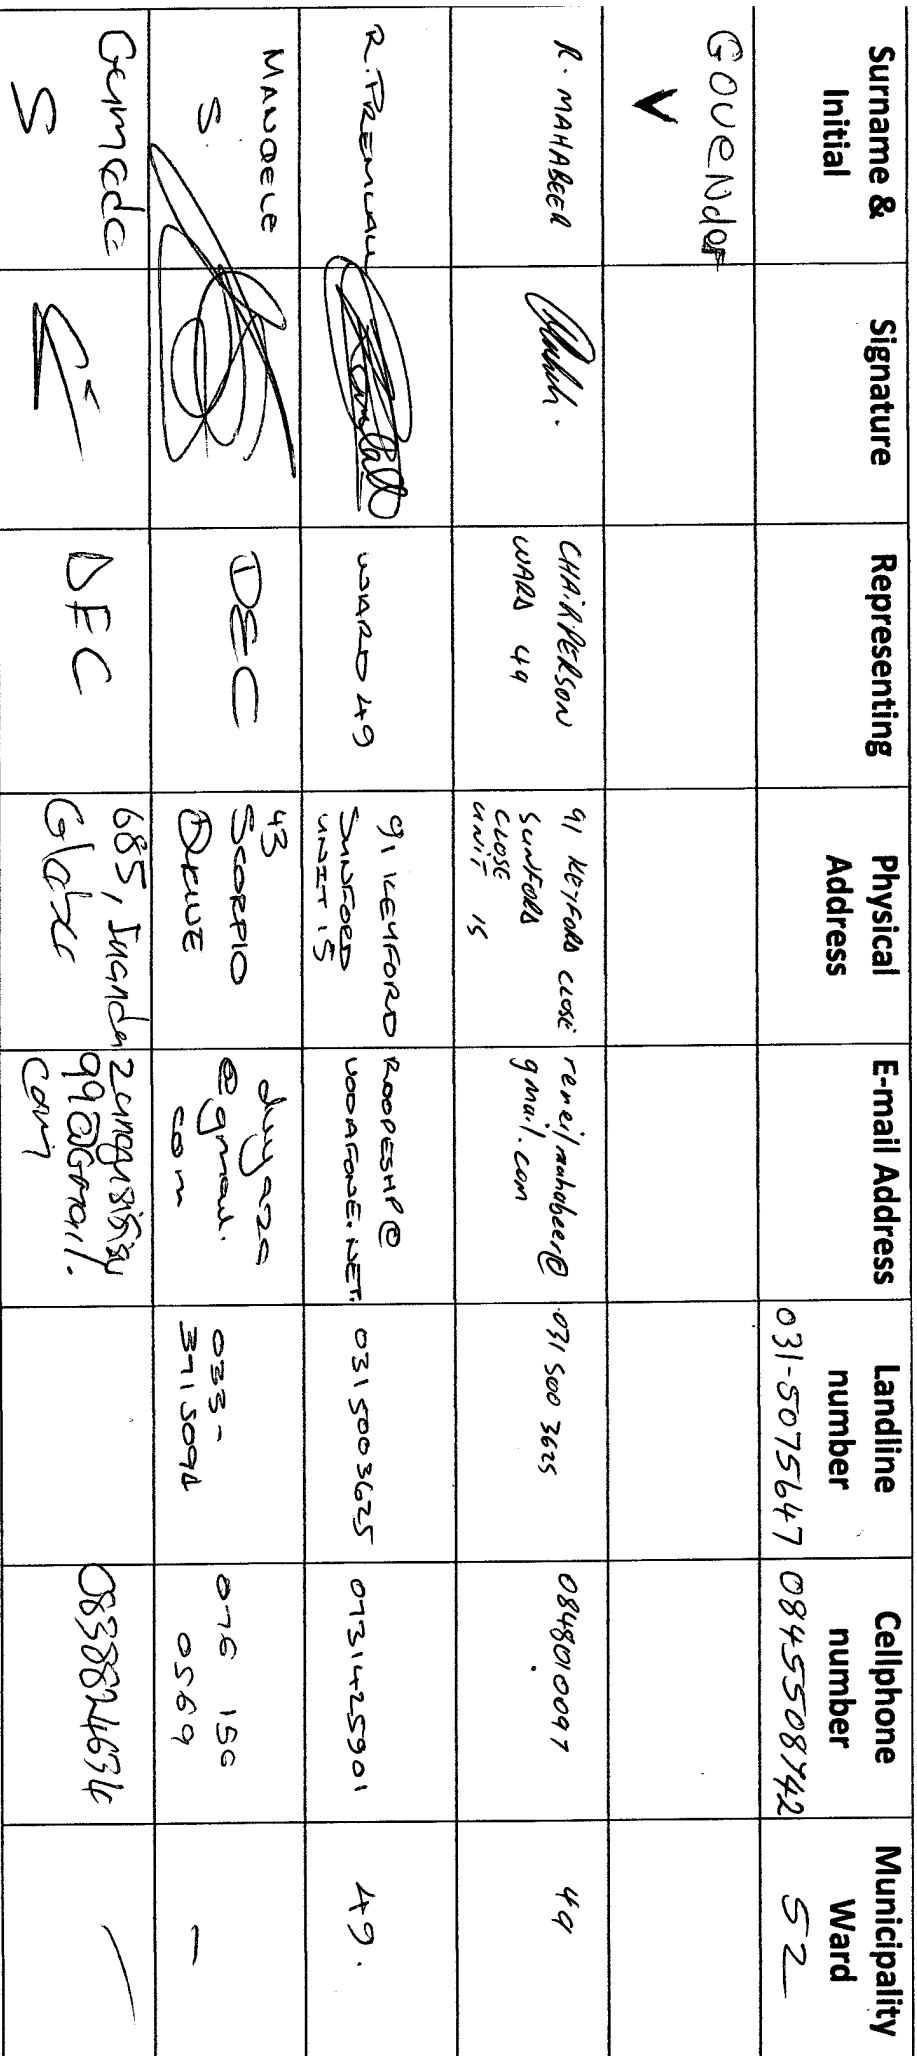 Surname &
Initial
Signature
Representing
Physical
Address
E-mail Address
Landline
number
Cellphone
number
Municipality
Ward
031-5075647
0845508742
52
Govender
V
R. MAHABEER
CHAIRPERSON
WARD 49
91 KEYFORD CLOSE
SUNFORD
CLOSE
UNIT 15
reneilmahabeer@
gmail.com
031 500 3625
0848010097
49
R. PREMLALL
WARD 49
91 KEYFORD
SUNFORD
UNIT 15
ROOPESHP@
VODAFONE.NET.
031 5003625
0731425901
49.
S.
DEC
43
SCORPIO
@gmail.
com
033-
076 150
0569
-
Gumede
S
DEC
685, Inanda
99@Gmail.
Com
0838824634